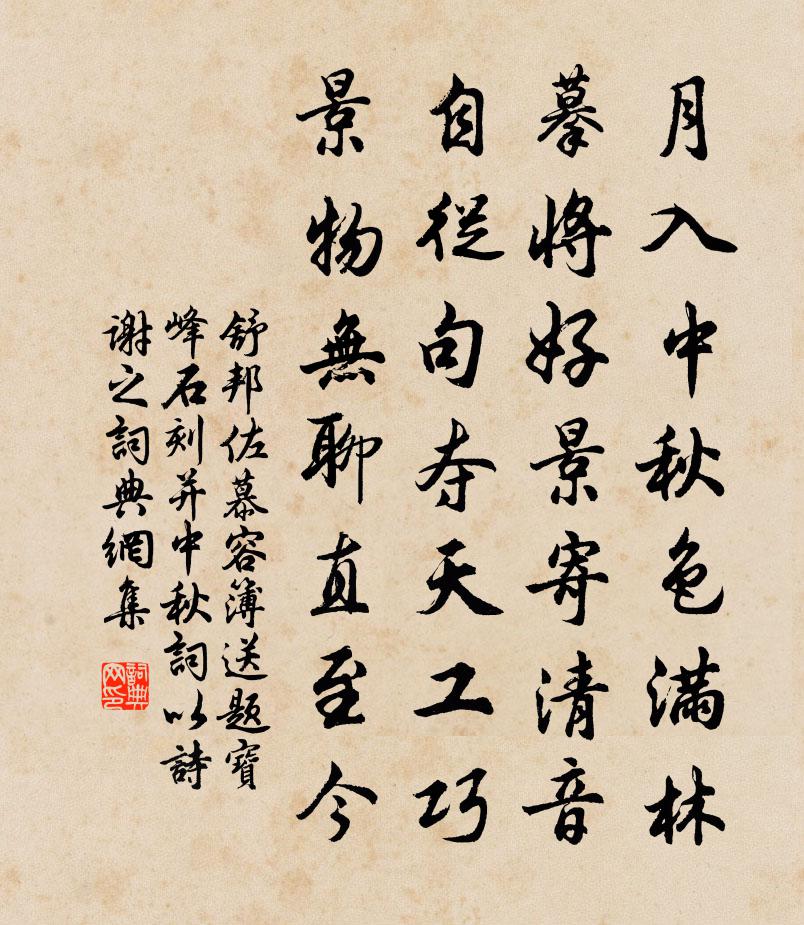 月入中秋色滿林
摹將好景寄清音
自從句夺天工巧
景物無聊直至今
舒邦佐慕容簿送題寶
峰石刻并中秋詞以詩
謝之詞典網集
詞典
网印